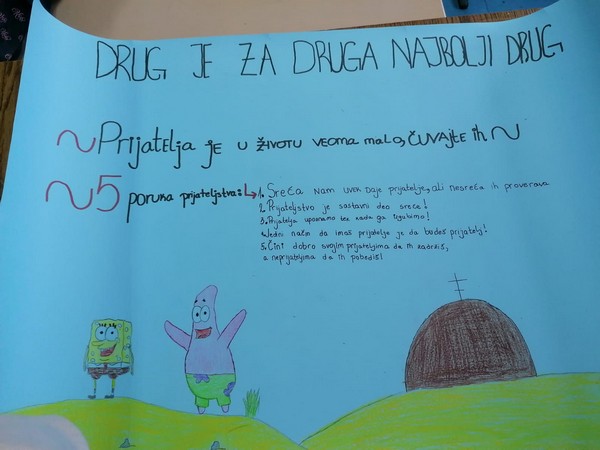 DRUG JE ZA DRUGA NAJBOLJI DRUG
~Prijatelja je u životu veoma malo, čuvajte ih~
~5 poruka prijateljstva:
1. Sreća nam uvek daje prijatelje, ali nesreća ih proverava
2. Prijateljstvo je sastavni deo sreće!
3. Prijatelja upoznamo tek kada ga izgubimo!
4. Jedini način da imaš prijatelje je da budeš prijatelj!
5. Čini dobro svojim prijateljima da ih zadržiš,
a neprijateljima da ih pobediš!